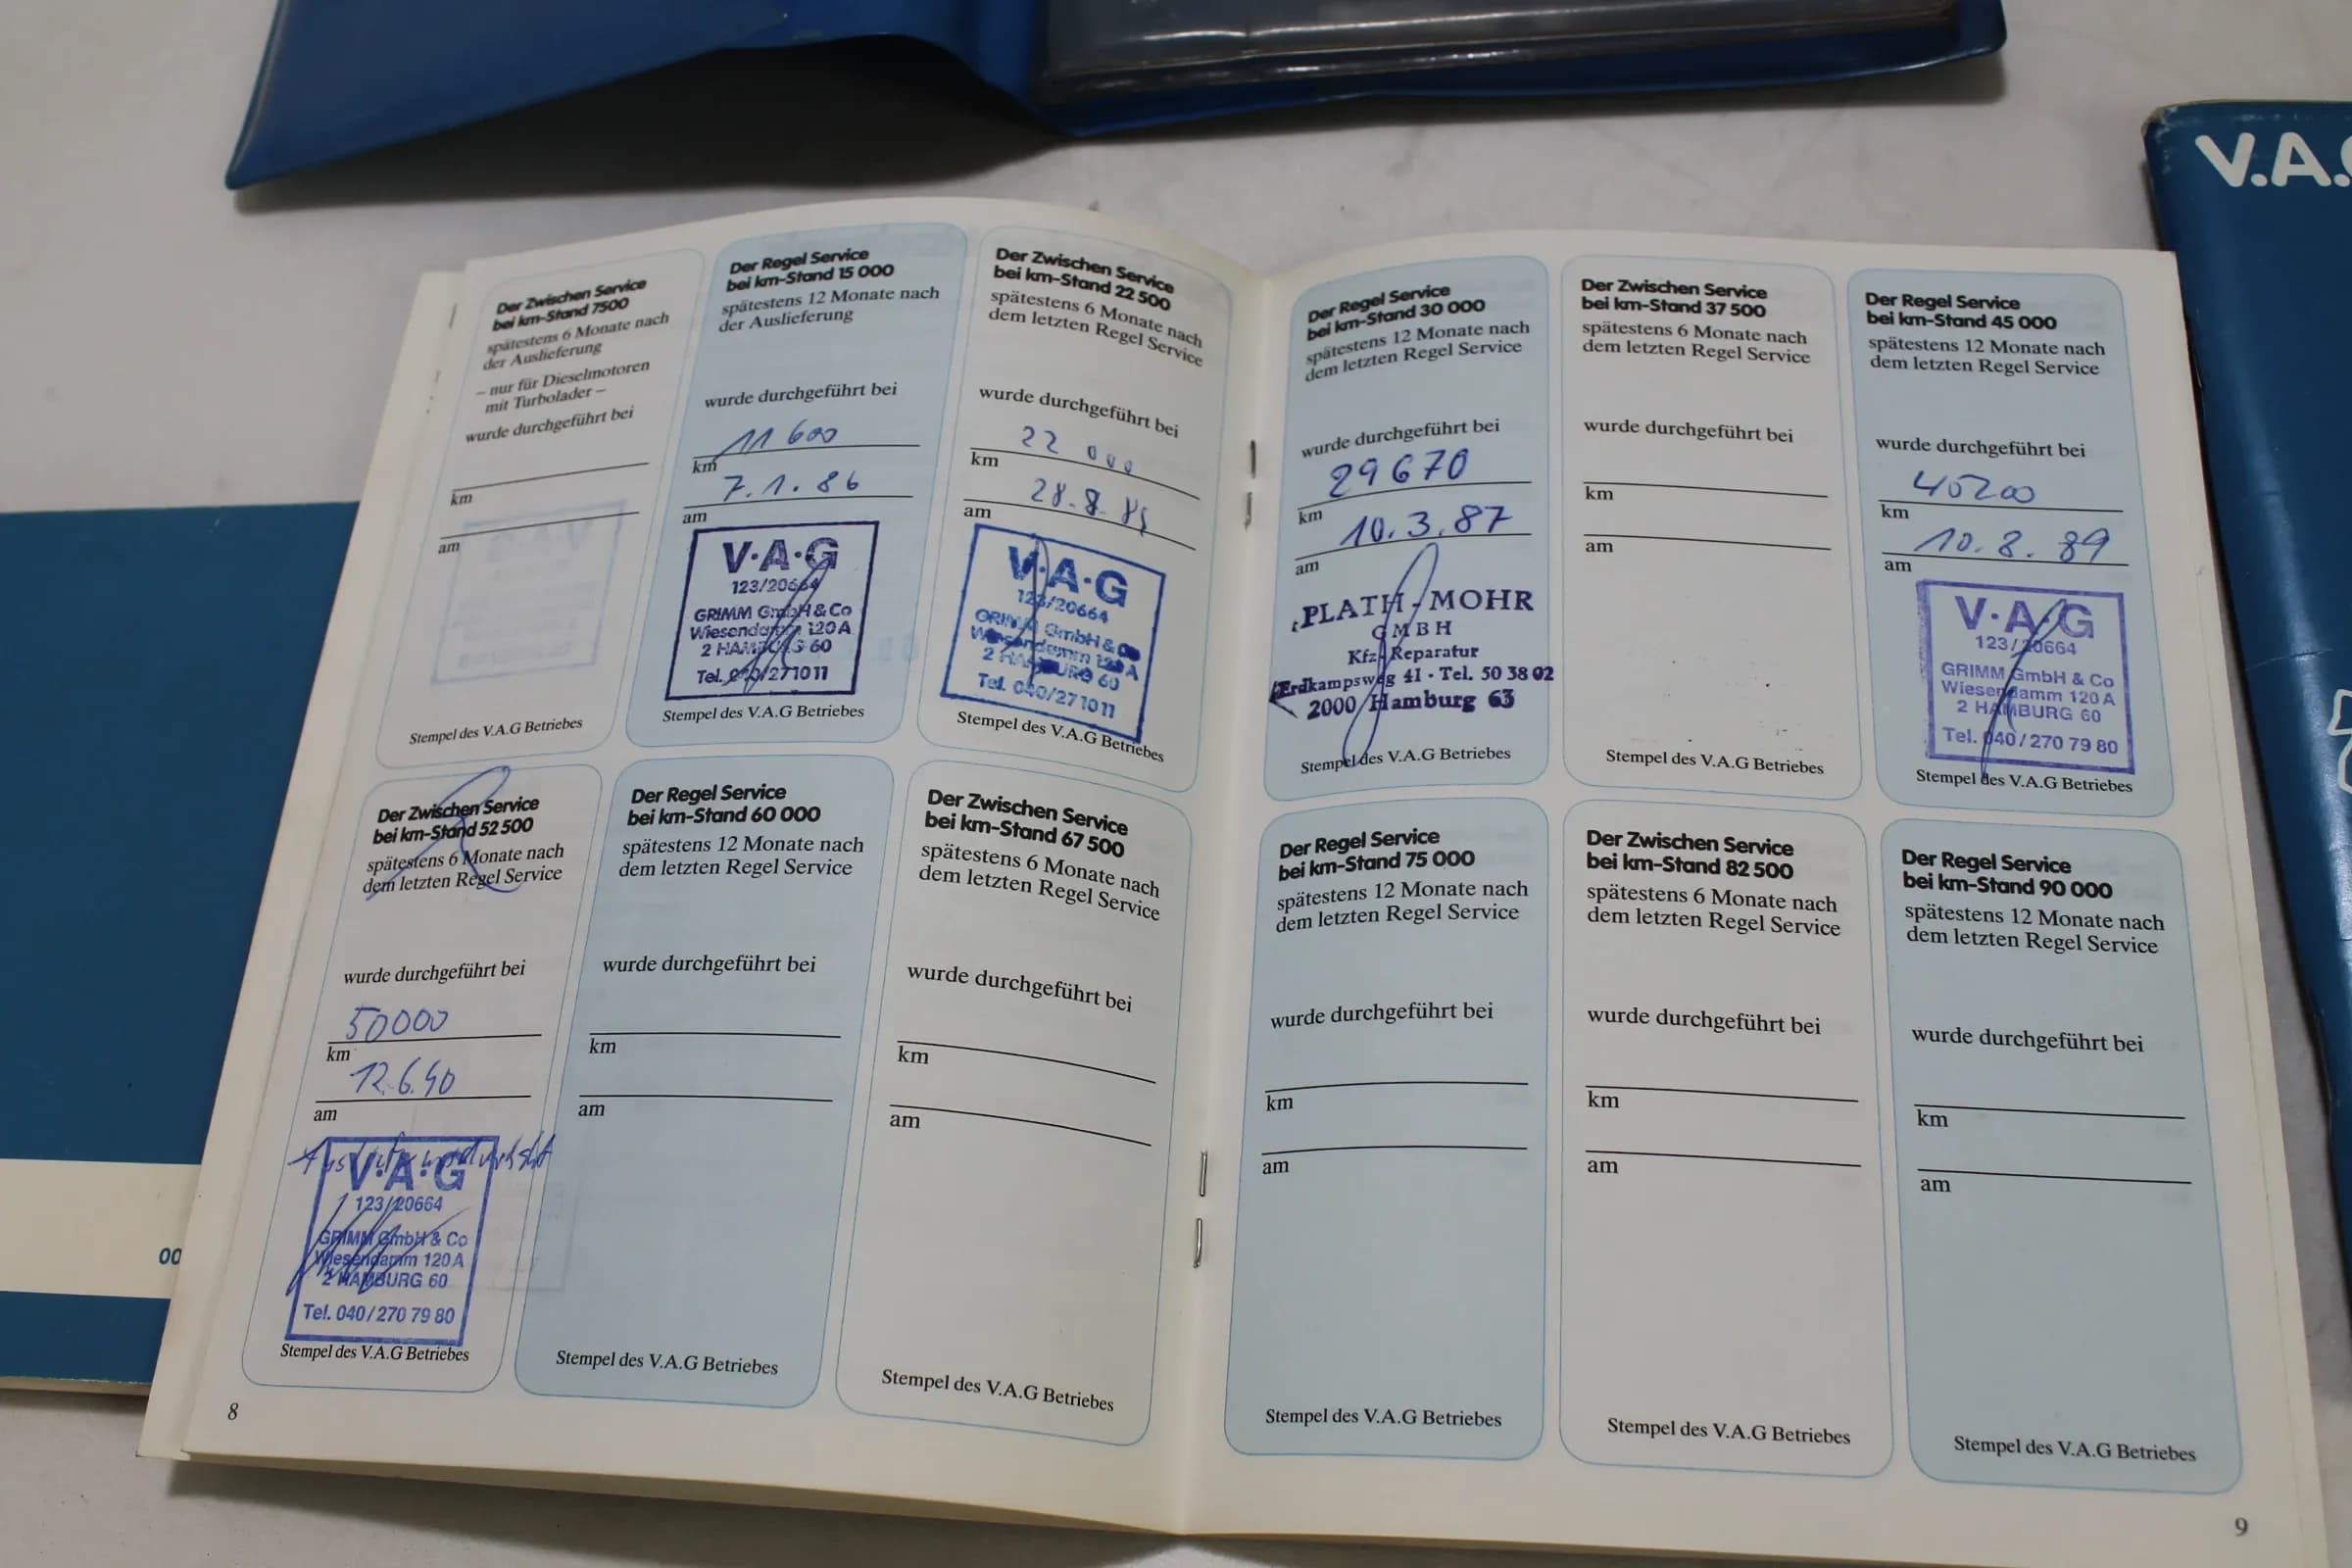 V.A.
Der Zwischen Service
bei km-Stand 7500
spätestens 6 Monate nach
der Auslieferung
– nur für Dieselmotoren
mit Turbolader –
wurde durchgeführt bei
km
am
Stempel des V.A.G Betriebes
Der Regel Service
bei km-Stand 15 000
spätestens 12 Monate nach
der Auslieferung
wurde durchgeführt bei
11 600
km
7.1.86
am
V·A·G
123/20664
GRIMM GmbH & Co
Wiesendamm 120 A
2 HAMBURG 60
Tel. 040/271011
Stempel des V.A.G Betriebes
Der Zwischen Service
bei km-Stand 22 500
spätestens 6 Monate nach
dem letzten Regel Service
wurde durchgeführt bei
22 000
km
am
V·A·G
123/20664
GRIMM GmbH & Co
Wiesendamm 120 A
2 HAMBURG 60
Tel. 040/271011
Stempel des V.A.G Betriebes
Der Regel Service
bei km-Stand 30 000
spätestens 12 Monate nach
dem letzten Regel Service
wurde durchgeführt bei
29670
km
10.3.87
am
PLATH-MOHR
GMBH
Kfz-Reparatur
Erdkampsweg 41 · Tel. 50 38 02
2000 Hamburg 63
Stempel des V.A.G Betriebes
Der Zwischen Service
bei km-Stand 37 500
spätestens 6 Monate nach
dem letzten Regel Service
wurde durchgeführt bei
km
am
Stempel des V.A.G Betriebes
Der Regel Service
bei km-Stand 45 000
spätestens 12 Monate nach
dem letzten Regel Service
wurde durchgeführt bei
45200
km
10.8.89
am
V·A·G
123/20664
GRIMM GmbH & Co
Wiesendamm 120 A
2 HAMBURG 60
Tel. 040/270 79 80
Stempel des V.A.G Betriebes
Der Zwischen Service
bei km-Stand 52 500
spätestens 6 Monate nach
dem letzten Regel Service
wurde durchgeführt bei
50000
km
12.6.90
am
V·A·G
123/20664
GRIMM GmbH & Co
Wiesendamm 120 A
2 HAMBURG 60
Tel. 040/270 79 80
Stempel des V.A.G Betriebes
Der Regel Service
bei km-Stand 60 000
spätestens 12 Monate nach
dem letzten Regel Service
wurde durchgeführt bei
km
am
Stempel des V.A.G Betriebes
Der Zwischen Service
bei km-Stand 67 500
spätestens 6 Monate nach
dem letzten Regel Service
wurde durchgeführt bei
km
am
Stempel des V.A.G Betriebes
Der Regel Service
bei km-Stand 75 000
spätestens 12 Monate nach
dem letzten Regel Service
wurde durchgeführt bei
km
am
Stempel des V.A.G Betriebes
Der Zwischen Service
bei km-Stand 82 500
spätestens 6 Monate nach
dem letzten Regel Service
wurde durchgeführt bei
km
am
Stempel des V.A.G Betriebes
Der Regel Service
bei km-Stand 90 000
spätestens 12 Monate nach
dem letzten Regel Service
wurde durchgeführt bei
km
am
Stempel des V.A.G Betriebes
00
8
9